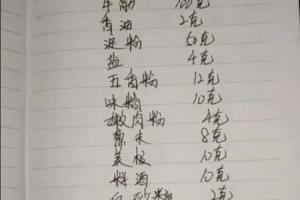 牛肉 100克
香油 2克
淀粉 60克
盐 4克
五香粉 12克
味精 10克
嫩肉粉 4克
葱末 8克
姜极 10克
料酒 10克
白砂糖 2克